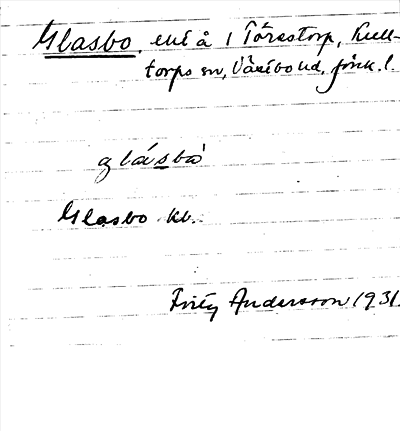 Glasbo, enl å i Tårestorp, Kull-
torps sn, Västbo hd, Jönk. l.
glásbò
Glasbo kb.
Fritz Andersson 1931.